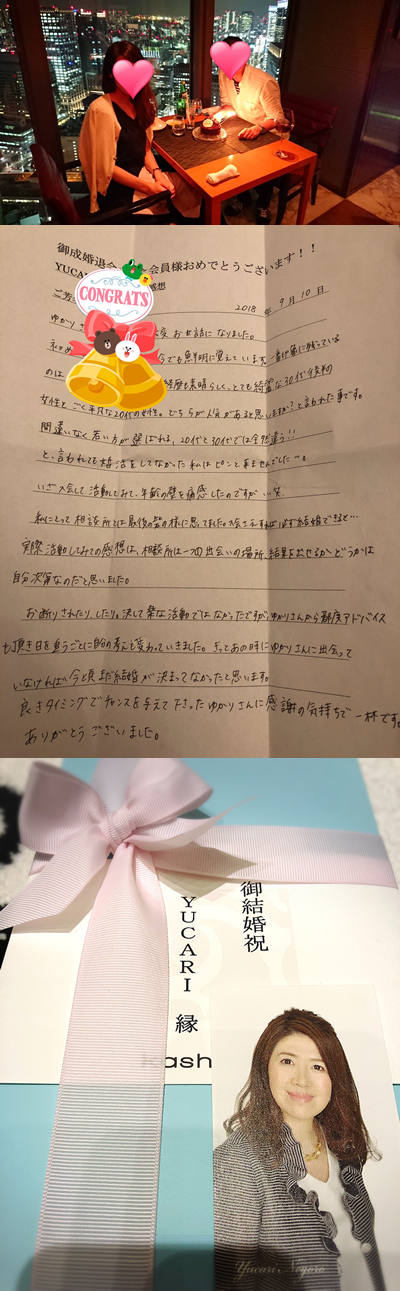 御成婚退会 会員様おめでとうございます！！
YUCA 感想
CONGRATS
ご芳
2018 年 9月 10日
ゆかりさ 変お世話になりました。
今でも鮮明に覚えています。印象に残っている
のは 経歴も素晴らしく、とても綺麗な30代後半の
女性とごく平凡な20代の女性。どちらが人気があると思いますか？と言われた事です。
間違いなく若い方が選ばれる、20代と30代では全然違う!!
と、言われても婚活をしてなかった私はピンと来ませんでした…。
いざ入会して活動してみて、年齢の壁を痛感したのですが…笑
私にとって相談所とは最後の砦の様に思ってました。入会さえすれば必ず結婚できると…
実際活動してみての感想は、相談所は一つの出会いの場所、結果を出せるかどうかは
自分次第なのだと思いました。
お断りされたり、したり。決して楽な活動ではなかったですが、ゆかりさんから都度アドバイス
も頂き日を追うごとに自分の考えも変わっていきました。きっとあの時にゆかりさんに出会って
いなければ今頃まだ結婚が決まってなかったと思います。
良きタイミングでチャンスを与えて下さったゆかりさんに感謝の気持ちで一杯です。
ありがとうございました。
御結婚祝
YUCARI 縁
Kash
Yucari Negoro